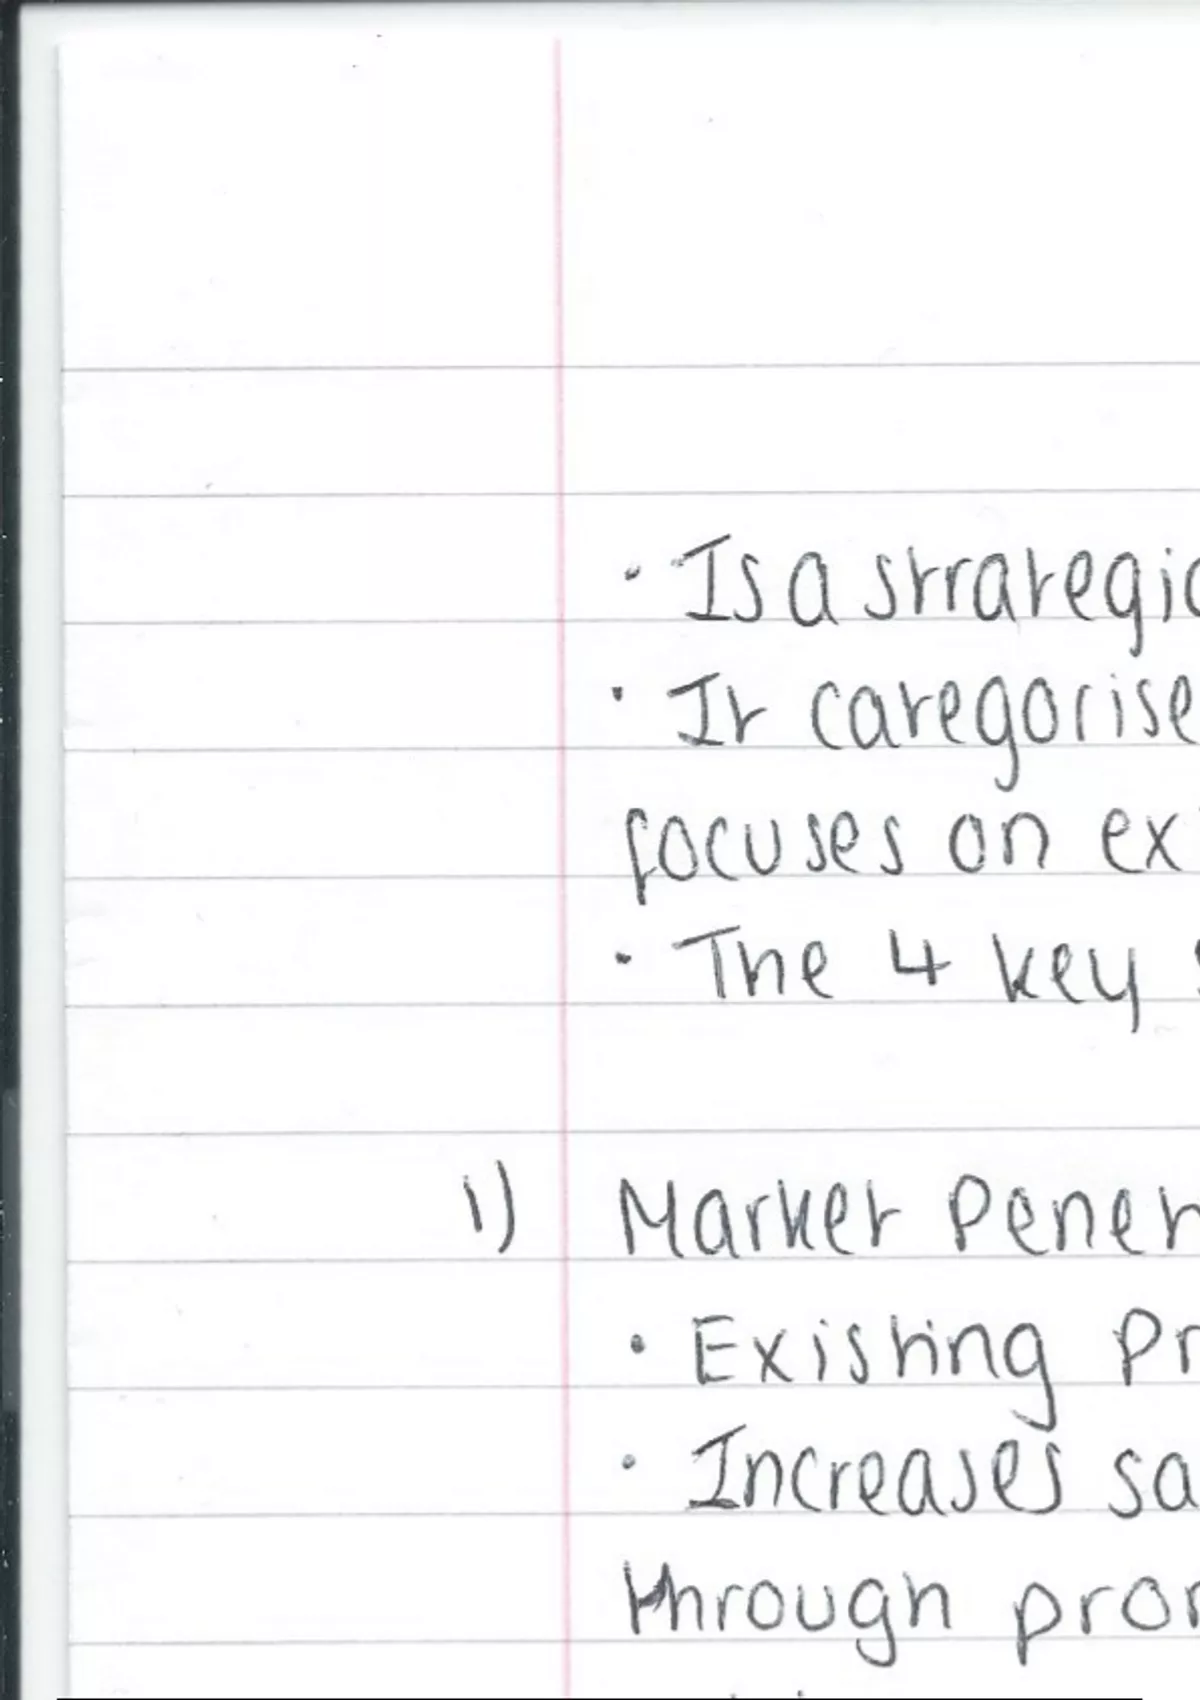 · Is a strategic
· It categorise
focuses on ex
· The 4 key
1) Market Penet
· Existing Pr
· Increases sa
through pro